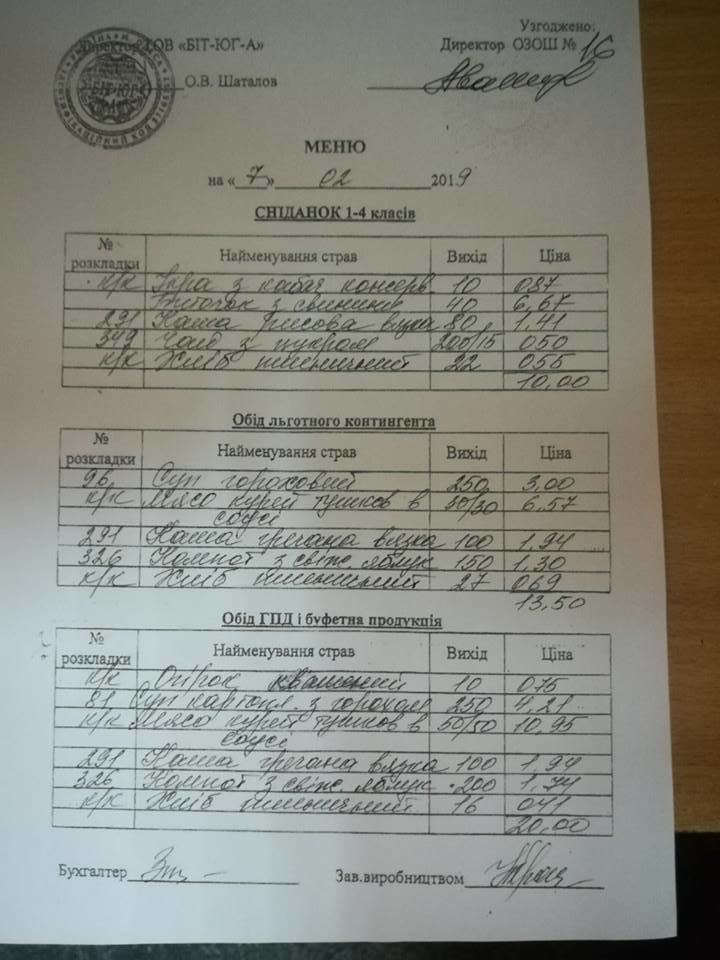 Узгоджено:
Директор ТОВ «БІТ-ЮГ-А» Директор ОЗОШ № 16
О.В. Шаталов
УКРАЇНА М. ОДЕСА
БІТ-ЮГ-А
ІДЕНТИФІКАЦІЙНИЙ КОД
МЕНЮ
на « 7 » 02 2019
СНІДАНОК 1-4 класів
№ розкладки Найменування страв Вихід Ціна
к/к Ікра з кабач консерв. 10 087
Биточок з свинини 40 6,67
291 Каша рисова вязка 80 1,41
349 Чай з цукром 200/15 050
к/к Хліб пшеничний 22 055
10,00
Обід льготного контингента
№ розкладки Найменування страв Вихід Ціна
96 Суп гороховий 250 3,00
к/к Мясо курей тушков в 30/30 6,57
соусі
291 Каша гречана вязка 100 1,94
326 Компот з свіж. яблук 150 1,30
к/к Хліб пшеничний 27 069
13,50
Обід ГПД і буфетна продукпія
№ розкладки Найменування страв Вихід Ціна
к/к Огірок квашений 10 075
81 Суп картопл. з горохом 250 4,21
к/к Мясо курей тушков в 50/50 10,95
соусі
291 Каша гречана вязка 100 1,94
326 Компот з свіж. яблук 200 1,74
к/к Хліб пшеничний 16 041
20,00
Бухгалтер Зав.виробництвом